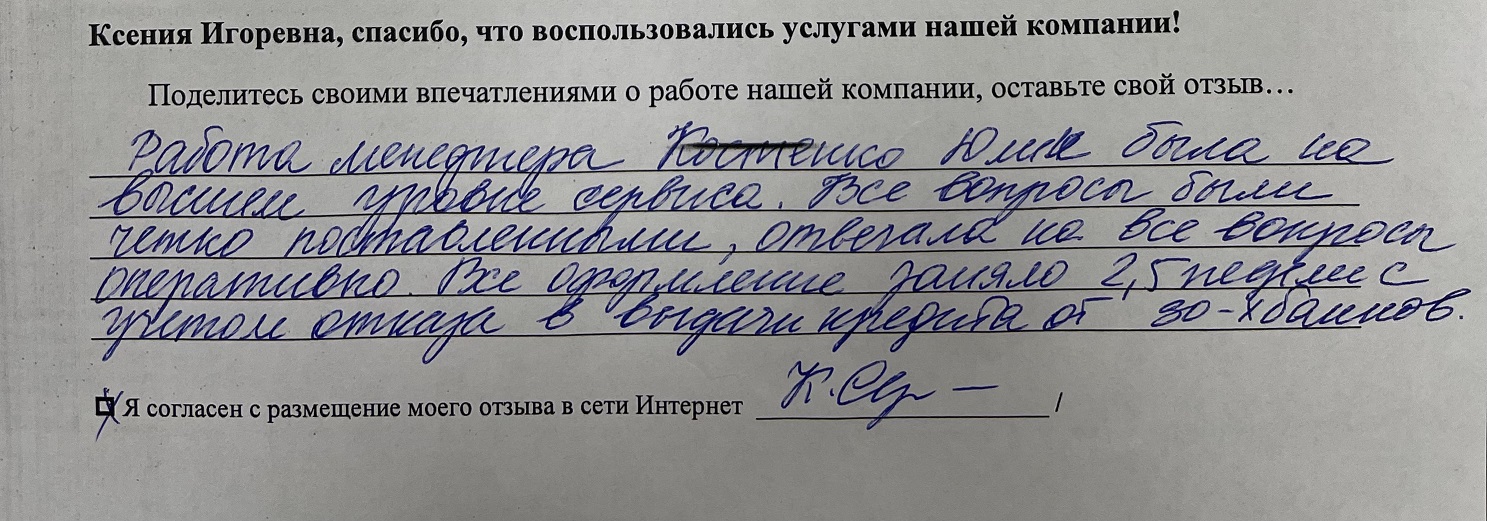 Ксения Игоревна, спасибо, что воспользовались услугами нашей компании!
Поделитесь своими впечатлениями о работе нашей компании, оставьте свой отзыв…
Работа менеджера Костенко Юлии была на
высшем уровне сервиса. Все вопросы были
четко поставленными, отвечала на все вопросы
оперативно. Все оформление заняло 2,5 недели с
учетом отказа в выдачи кредита от 30-х банков.
Я согласен с размещение моего отзыва в сети Интернет /